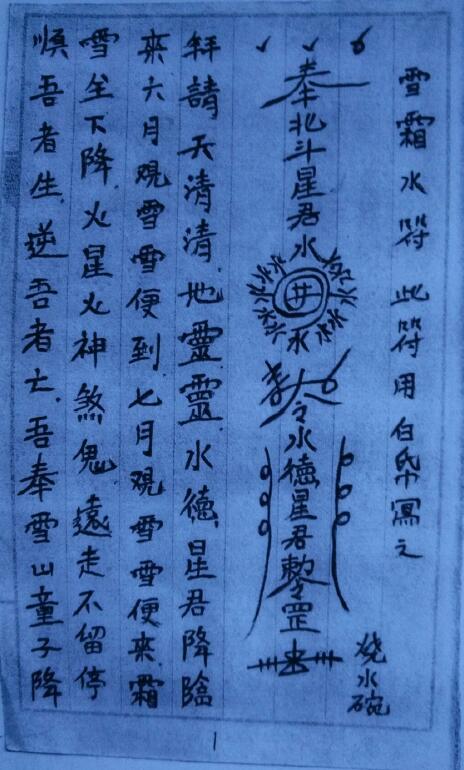 雪霜水符此符用白帋寫之
燒水碗
奉北斗星君水
井
水
令水德星君勅罡
拜請天清清地靈靈水德星君降臨
來六月观雪雪便到七月观雪雪便來霜
雪全下降火星火神煞鬼遠走不留停
順吾者生逆吾者亡吾奉雪山童子降
1